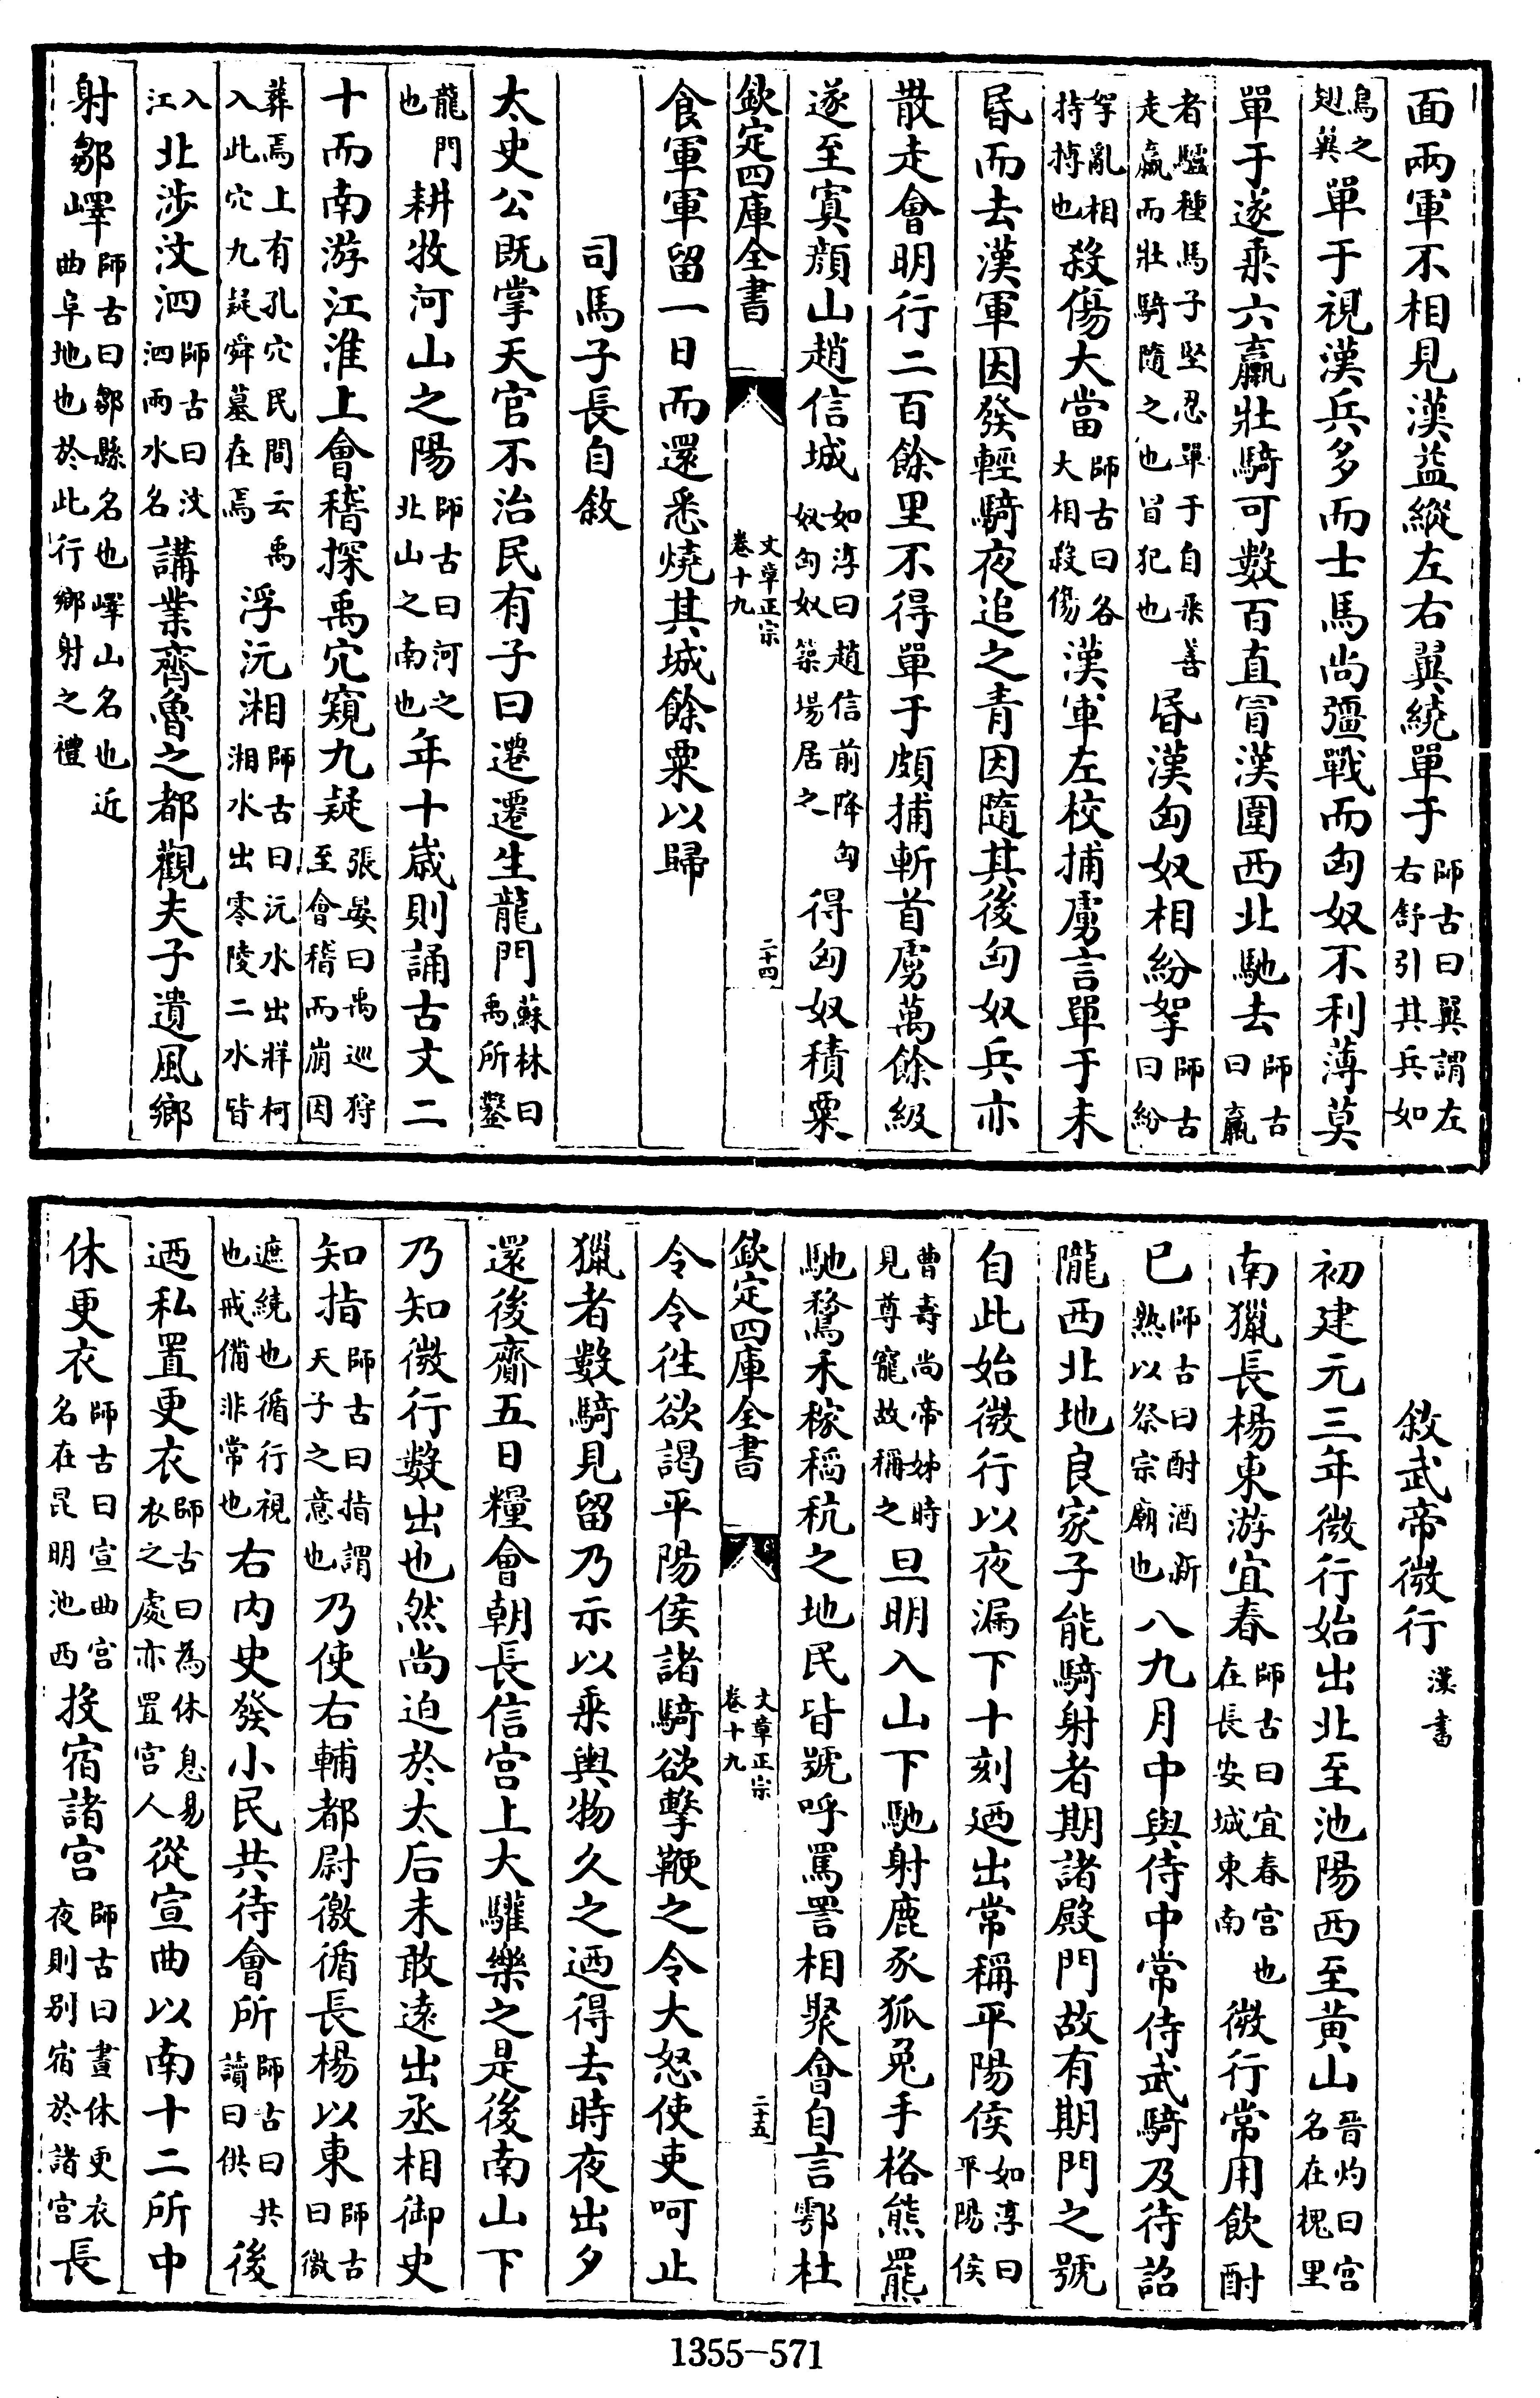 面兩軍不相見漢益縱左右翼繞單于師古曰翼謂左右舒引其兵如
鳥之翅翼單于視漢兵多而士馬尚彊戰而匈奴不利薄莫
單于遂乗六臝壯騎可數百直冒漢圍西北馳去師古曰臝
者驢種馬子堅忍單于自乗善走臝而壯騎隨之也冒犯也昬漢匈奴相紛挐師古曰紛
挐亂相持摶也殺傷大當師古曰各大相殺傷漢軍左校捕虜言單于未
昬而去漢軍因發輕騎夜追之青因隨其後匈奴兵亦
散走會明行二百餘里不得單于頗捕斬首虜萬餘級
遂至窴顔山趙信城如淳曰趙信前降匈奴匈奴築場居之得匈奴積粟
欽定四庫全書
文章正宗
卷十九
二十四
食軍軍留一日而還悉燒其城餘粟以歸
司馬子長自敘
太史公既掌天官不治民有子曰遷遷生龍門蘇林曰禹所鑿
龍門也耕牧河山之陽師古曰河之北山之南也年十歲則誦古文二
十而南游江淮上會稽探禹穴窺九疑張晏曰禹巡狩至會稽而崩因
葬焉上有孔穴民間云禹入此穴九疑舜墓在焉浮沅湘師古曰沅水出牂柯湘水出零陵二水皆
入江北涉汶泗師古曰汶泗兩水名講業齊魯之都觀夫子遺風鄉
射鄒嶧師古曰鄒縣名也嶧山名也近曲阜地也於此行鄉射之禮
敘武帝微行漢書
初建元三年微行始出北至池陽西至黄山晉灼曰宫名在槐里
南獵長楊東游宜春師古曰宜春宫也在長安城東南微行常用飲酎
已師古曰酎酒新熟以祭宗廟也八九月中與侍中常侍武騎及待詔
隴西北地良家子能騎射者期諸殿門故有期門之號
自此始微行以夜漏下十刻迺出常稱平陽侯如淳曰平陽侯
曹壽尚帝姊時見尊寵故稱之旦明入山下馳射鹿豕狐兔手格熊羆
馳騖禾稼稻秔之地民皆號呼罵詈相聚會自言鄠杜
欽定四庫全書
文章正宗
卷十九
二十五
令令徃欲謁平陽侯諸騎欲擊鞭之令大怒使吏呵止
獵者數騎見留乃示以乗輿物久之迺得去時夜出夕
還後齎五日糧會朝長信宫上大驩樂之是後南山下
乃知微行數出也然尚迫於太后未敢遠出丞相御史
知指師古曰指謂天子之意也乃使右輔都尉徼循長楊以東師古曰徼
遮繞也循行視也戒備非常也右内史發小民共待會所師古曰共讀曰供後
迺私置更衣師古曰為休息易衣之處亦置宫人從宣曲以南十二所中
休更衣師古曰宣曲宫名在昆明池西投宿諸宫師古曰晝休更衣夜則别宿於諸宫長
1355-571